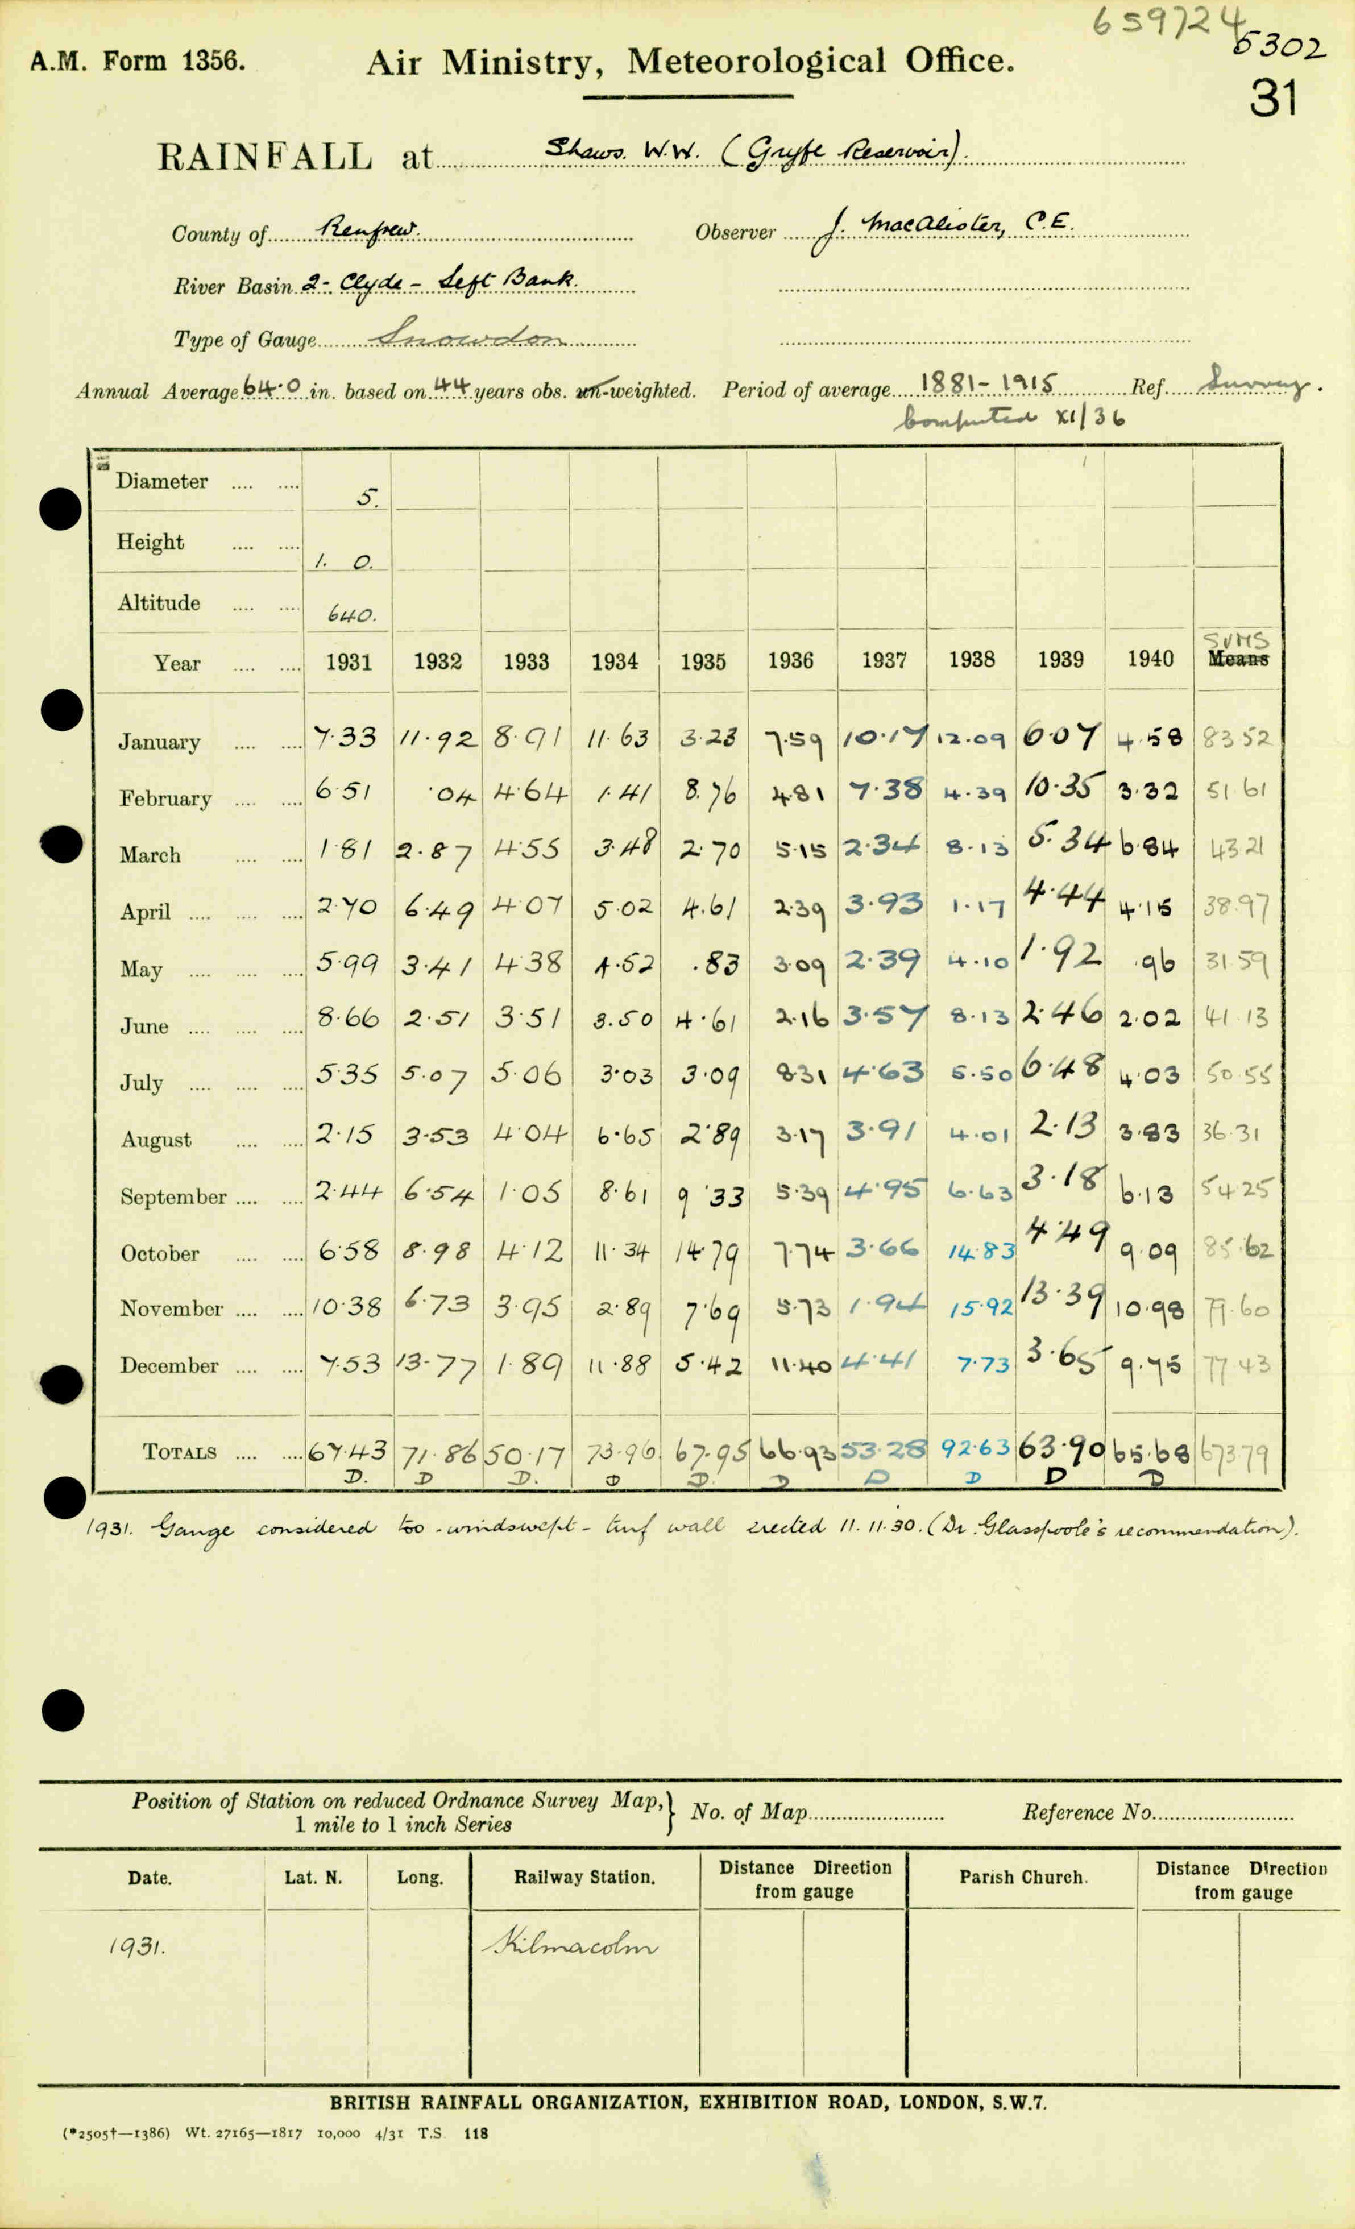 659724
5302
31
A.M. Form 1356.
Air Ministry, Meteorological Office.
RAINFALL at Shaws. W.W. (Gryfe Reservoir).
County of Renfrew. Observer J. MacAlister, C.E.
River Basin 2- Clyde - Left Bank.
Type of Gauge Snowdon
Annual Average 64.0 in. based on 44 years obs. un-weighted. Period of average 1881-1915 Ref. Survey.
Computed XI/36
Diameter .... .... 5.
Height .... .... 1. 0.
Altitude .... .... 640.
SUMS
Year .... .... 1931 1932 1933 1934 1935 1936 1937 1938 1939 1940 Means
January .... .... 7.33 11.92 8.91 11.63 3.23 7.59 10.17 12.09 6.07 4.58 83.52
February .... .... 6.51 .04 4.64 1.41 8.76 4.81 7.38 4.39 10.35 3.32 51.61
March .... .... 1.81 2.87 4.55 3.48 2.70 5.15 2.34 8.13 5.34 6.84 43.21
April .... .... .... 2.70 6.49 4.07 5.02 4.61 2.39 3.93 1.17 4.44 4.15 38.97
May .... .... .... 5.99 3.41 4.38 4.52 .83 3.09 2.39 4.10 1.92 .96 31.59
June .... .... .... 8.66 2.51 3.51 3.50 4.61 2.16 3.57 8.13 2.46 2.02 41.13
July .... .... .... 5.35 5.07 5.06 3.03 3.09 8.31 4.63 5.50 6.48 4.03 50.55
August .... .... 2.15 3.53 4.04 6.65 2.89 3.17 3.91 4.01 2.13 3.83 36.31
September .... .... 2.44 6.54 1.05 8.61 9.33 5.39 4.95 6.63 3.18 6.13 54.25
October .... .... 6.58 8.98 4.12 11.34 14.79 7.74 3.66 14.83 4.49 9.09 85.62
November .... .... 10.38 6.73 3.95 2.89 7.69 5.73 1.94 15.92 13.39 10.98 79.60
December .... .... 7.53 13.77 1.89 11.88 5.42 11.40 4.41 7.73 3.65 9.75 77.43
TOTALS .... .... 67.43 71.86 50.17 73.96 67.95 66.93 53.28 92.63 63.90 65.68 673.79
D. D D. D D. D D D D D
1931. Gauge considered too windswept - turf wall erected 11.11.30. (Dr. Glasspoole's recommendation).
Position of Station on reduced Ordnance Survey Map, 1 mile to 1 inch Series } No. of Map Reference No.
Date. Lat. N. Long. Railway Station. Distance Direction from gauge Parish Church. Distance Direction from gauge
1931. Kilmacolm
BRITISH RAINFALL ORGANIZATION, EXHIBITION ROAD, LONDON, S.W.7.
(*2505†—1386) Wt. 27165—1817 10,000 4/31 T.S. 118